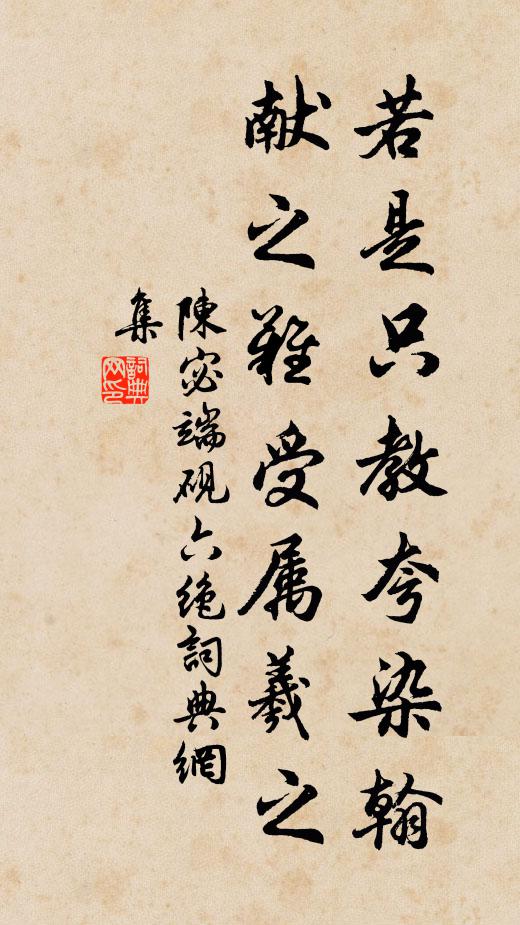 若是只教夸染翰
献之难受属羲之
陳宓端硯六绝詞典網
集
詞典网印